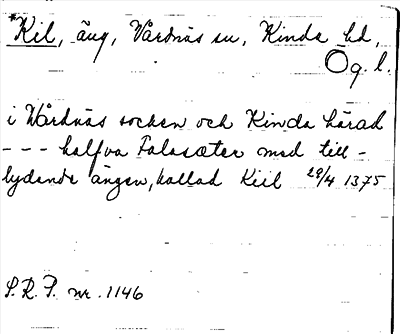 *Kil, äng, Vårdnäs sn, Kinda hd,
Ög. l.
i Wårdnäs socken och Kinda härad
- - - halfva Falasæter med till-
lydande ängen, kallad Kiil 29/4 1375
S.R.P. nr. 1146